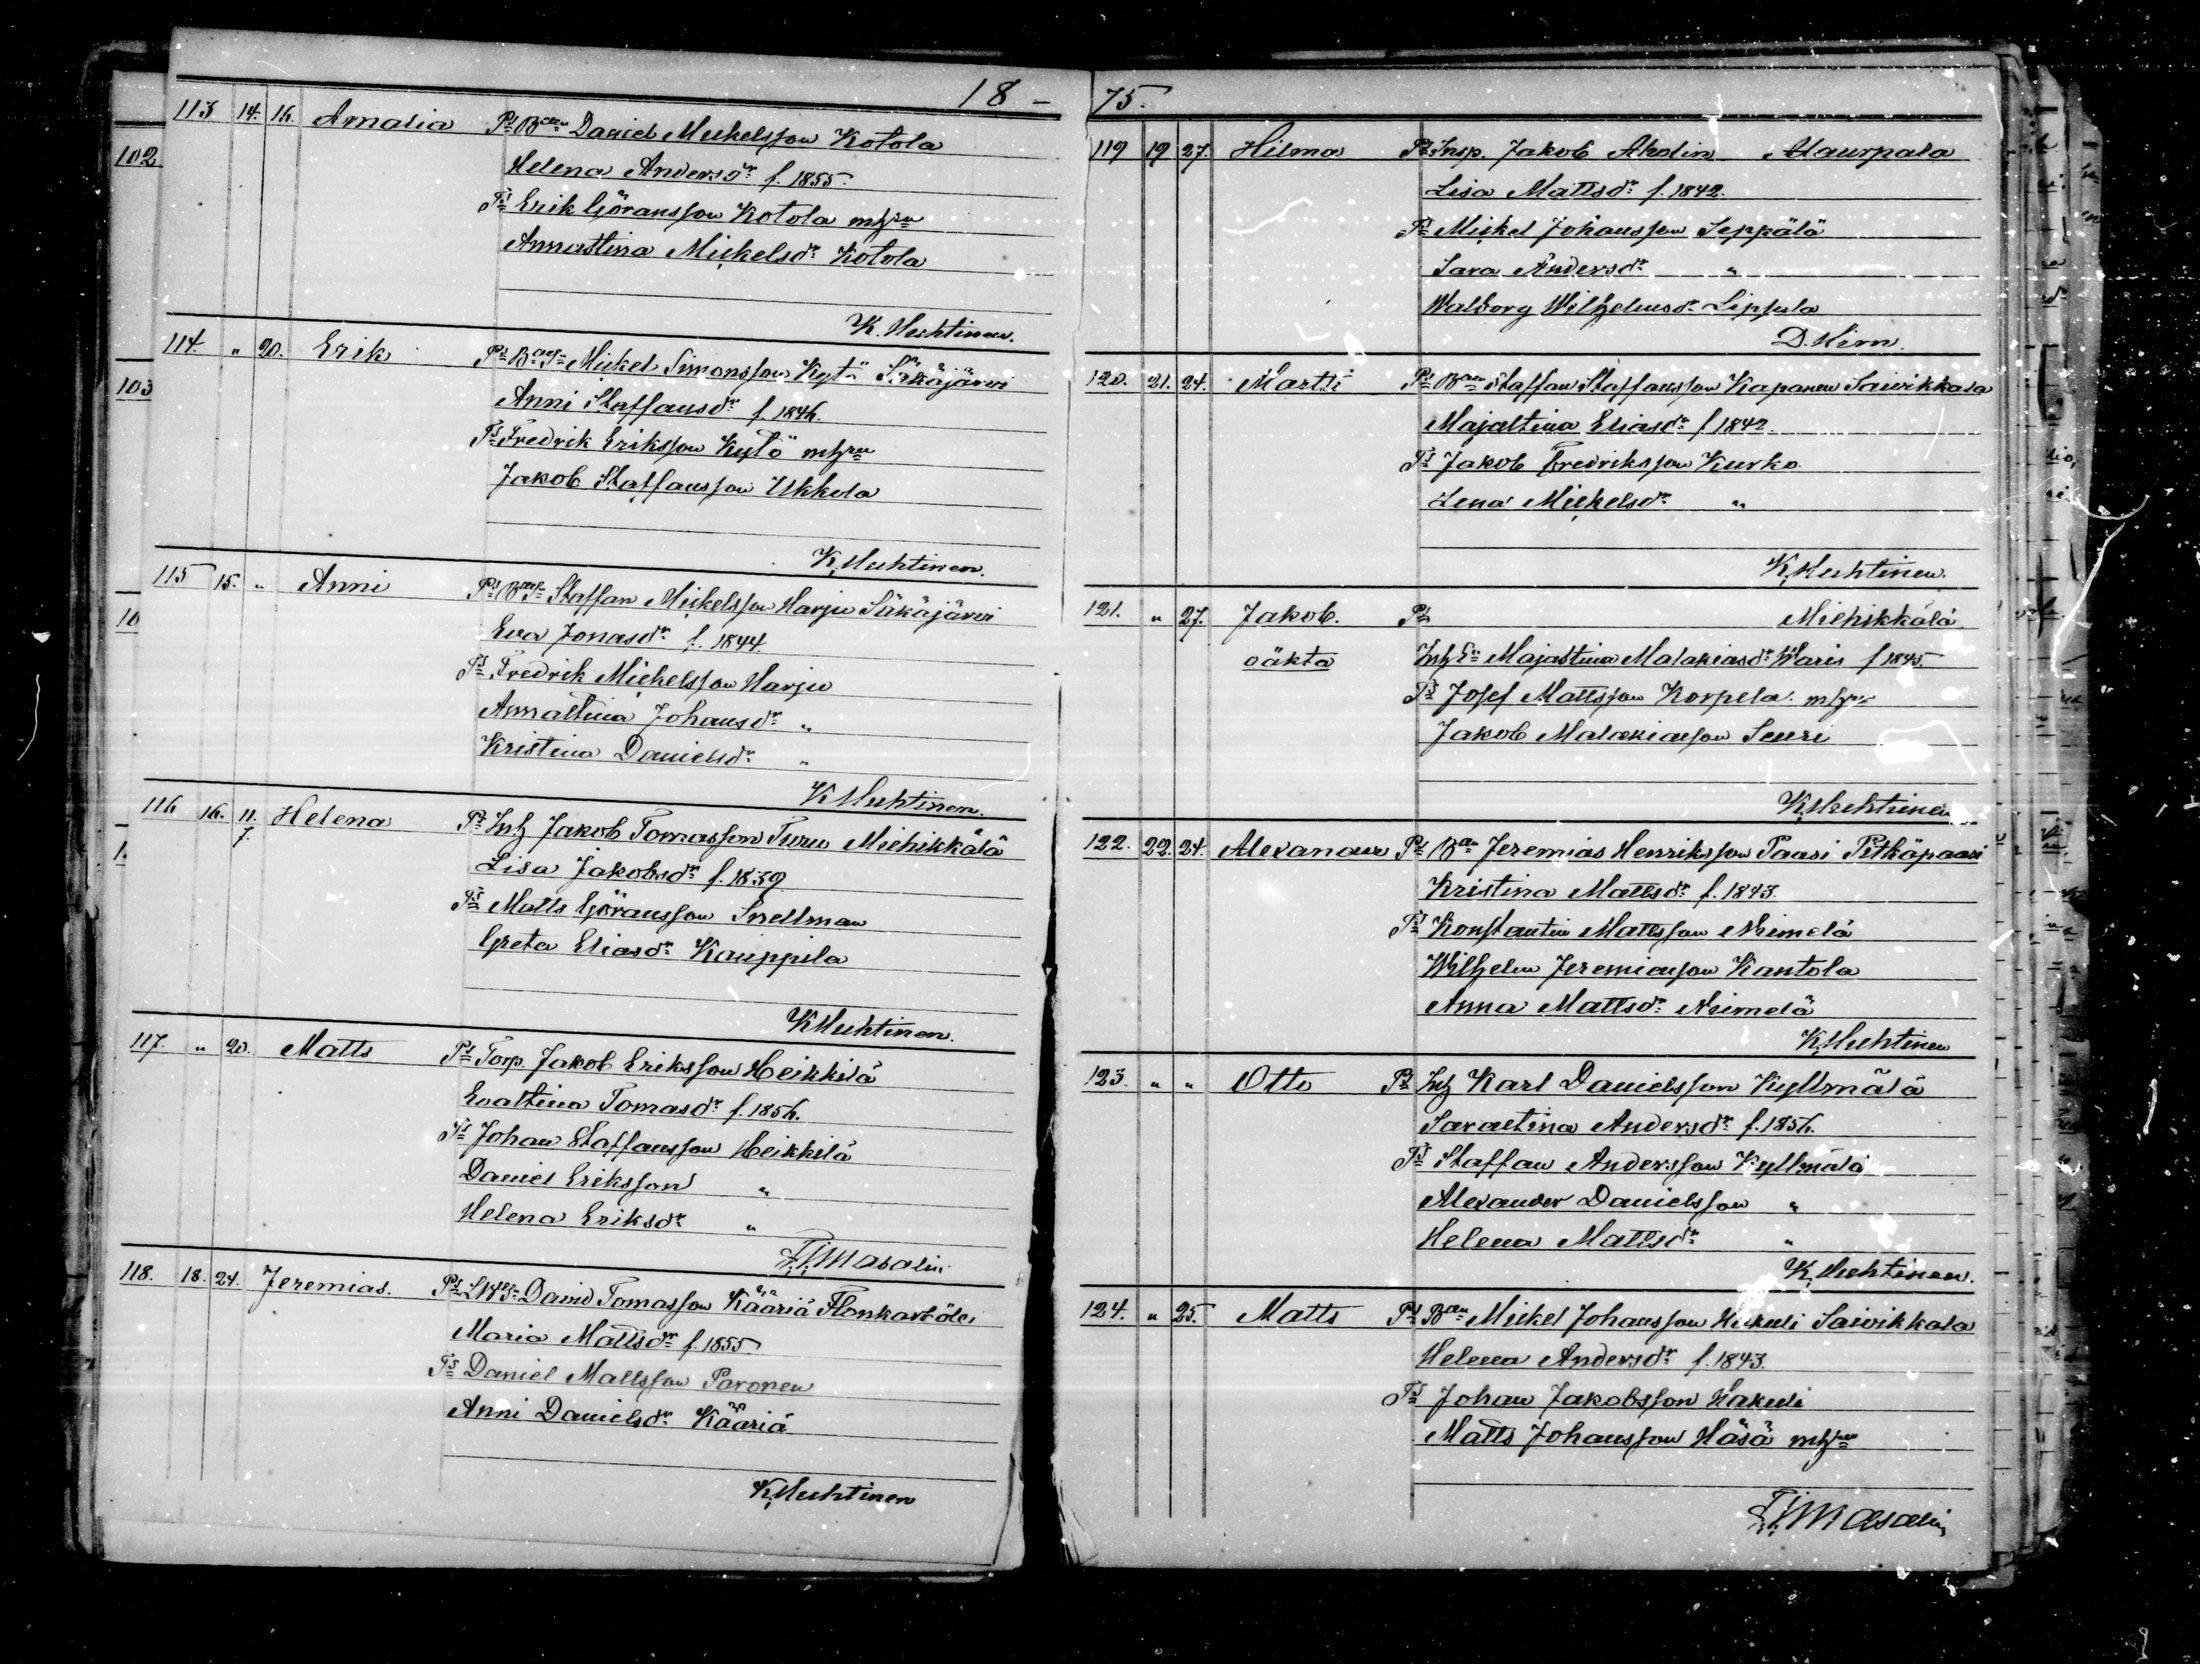 18 –
113 14. 16. Amalia Ps Bon Daniel Mickelsson Kotola
102
Helena Andersdr f. 1855.
Ts Erik Göransson Kotola mhru
Annastina Mickelsdr Kotola
K. Huhtinen.
114. " 20. Erik Ps Mickel Simonsson Kytö Säkäjärvi
103
Anni Staffansdr f. 1846.
Ts Fredrik Eriksson Kytö mhru
Jakob Staffansson Ukkola
K. Huhtinen.
115 15. " Anni Ps Staffan Mickelsson Harju Säkäjärvi
10
Eva Jonasdr f. 1844.
Ts Fredrik Mickelsson Harju
Annastina Johansdr "
Kristina Danielsdr "
K. Huhtinen.
116 16. 11. 7. Helena Ps Inh Jakob Tomasson Turu Miehikkälä
1.
Lisa Jakobsdr f. 1839
Ts Matts Göransson Snellman
Greta Eliasdr Kauppila
K. Huhtinen.
117. " 20. Matts Ps Torp. Jakob Eriksson Heikkilä
Evastina Tomasdr f. 1856.
Ts Johan Staffansson Heikkilä
Daniel Eriksson "
Helena Eriksdr "
F. J. Masalin
118. 18. 24. Jeremias. Ps David Tomasson Kääriä
Maria Mattsdr f. 1855
Ts Daniel Mattsson Paronen
Anni Danielsdr Kääriä
K. Huhtinen
75.
119 19 27. Hilma Ps Insp. Jakob Ahdin Maurpala
Lisa Mattsdr f. 1842.
Ts Mickel Johansson Seppälä
Sara Andersdr "
Walborg Wilhelmsdr Lippula
D. Hirn.
120. 21. 24. Martti Ps Bon Staffan Staffansson Kapanen Saivikkala
Majastina Eliasdr f 1842.
Ts Jakob Fredriksson Kurko.
Lena Mickelsdr "
K. Huhtinen.
121. " 27. Jakob. Ps Miehikkälä
oäkta Inh Majastina Malakiasdr Waris f 1845.
Ts Josef Mattsson Korpela mhru
Jakob Malakiasson Suuri
K. Huhtinen
122. 22. 24. Alexander Ps Bon Jeremias Henriksson Paasi Pitkäpaasi
Kristina Mattsdr f. 1843.
Ts Konstantin Mattsson Niemelä
Wilhelm Jeremiasson Kantola
Anna Mattsdr Niemelä
K. Huhtinen
123. " " Otto Ps Inh Karl Danielsson Kyllmälä
Sarastina Andersdr f. 1856.
Ts Staffan Andersson Kyllmälä
Alexander Danielsson "
Helena Mattsdr "
K. Huhtinen.
124. " 25. Matts Ps Bon Mickel Johansson Hakuli Saivikkala
Helena Andersdr f. 1843.
Ts Johan Jakobsson Hakuli
Matts Johansson Häsä mhru
F. J. Masalin